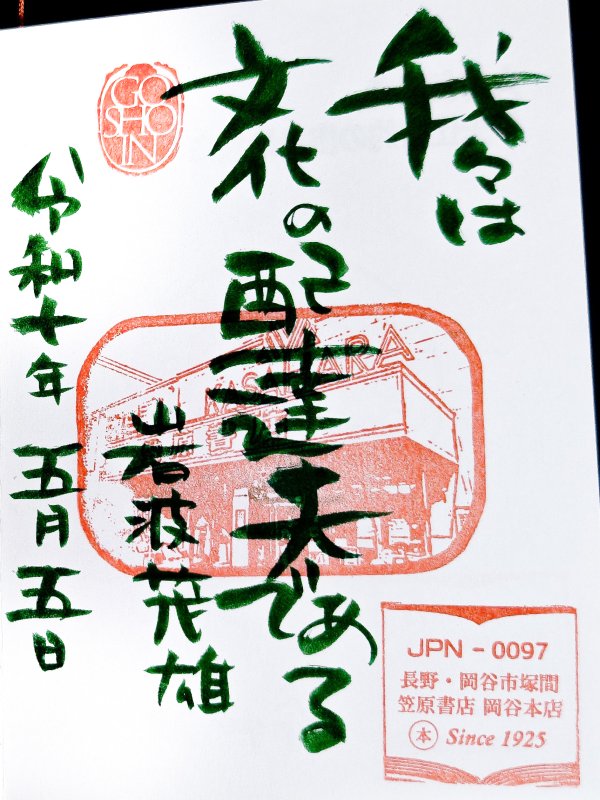 我々は
文化の
配達夫である
岩波茂雄
令和十年 五月五日
GO
SHO
IN
KASAHARA
JPN - 0097
長野・岡谷市塚間
笠原書店 岡谷本店
本 Since 1925